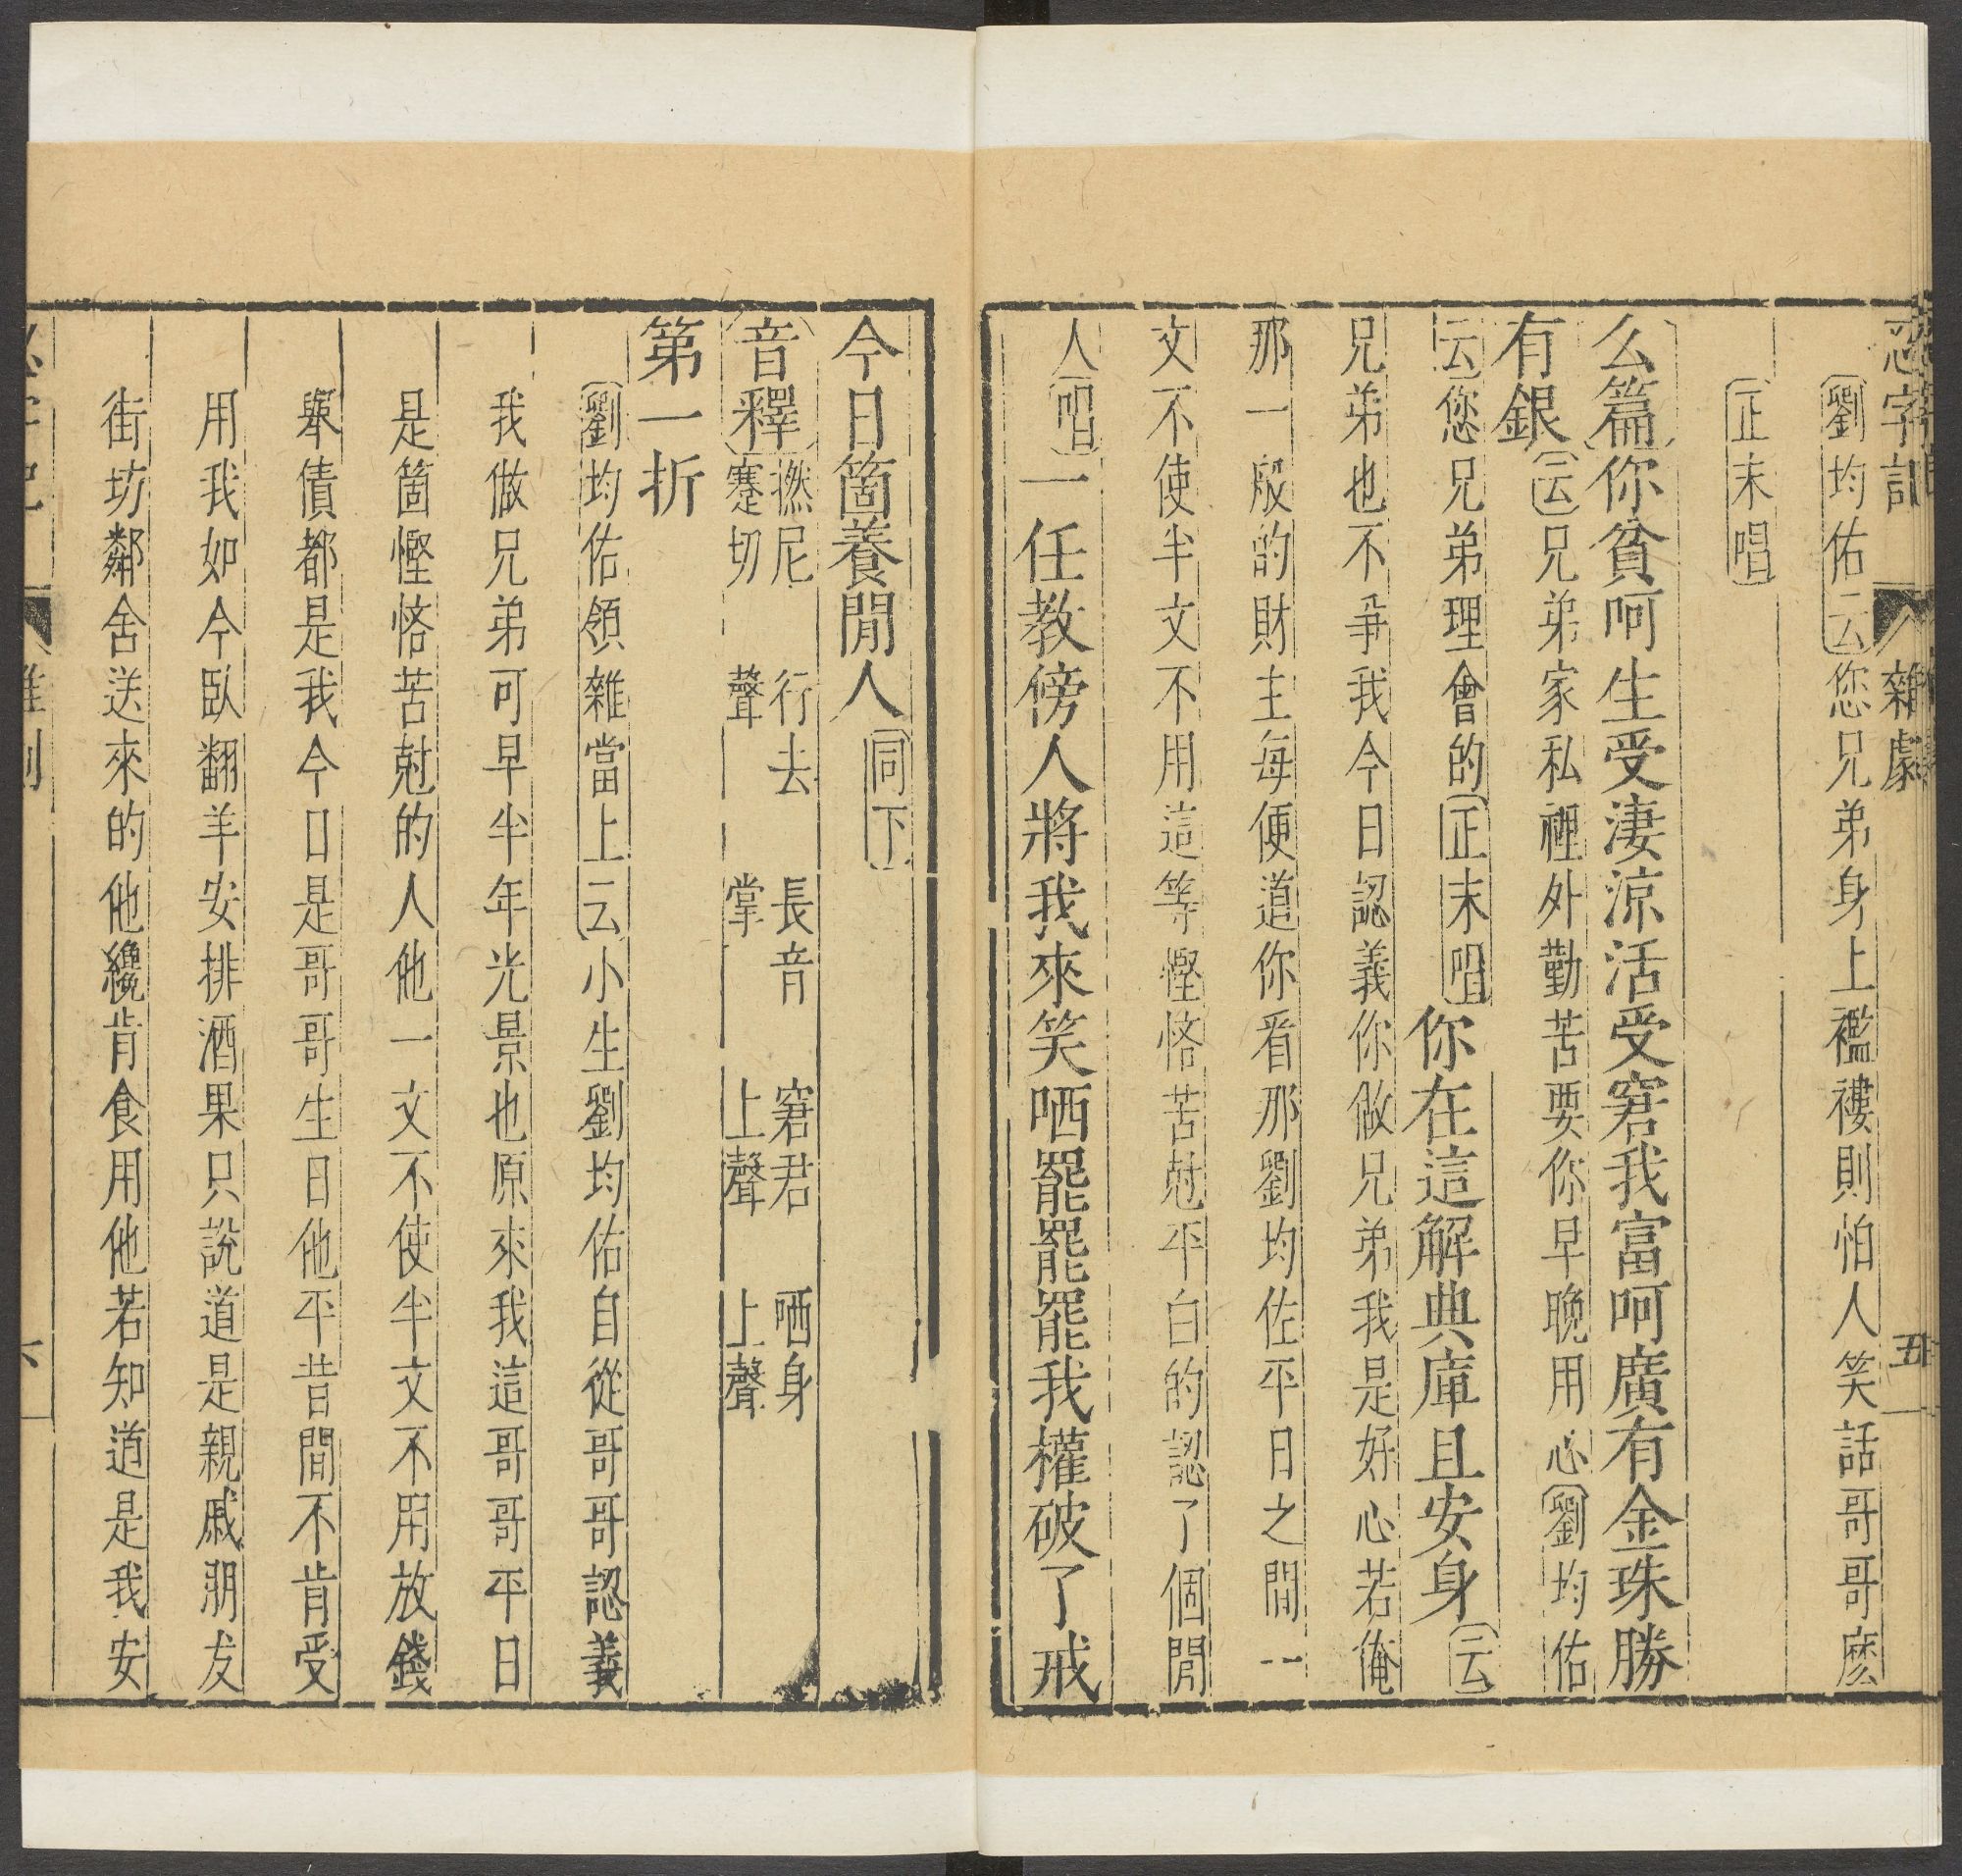 忍字記 雜劇 五
劉均佑云您兄弟身上襤褸則怕人笑話哥哥麽
正末唱
么篇你貧呵生受淒涼活受窘我富呵廣有金珠勝
有銀云兄弟家私裡外勤苦要你早晚用心劉均佑
云您兄弟理會的正末唱你在這解典庫且安身云
兄弟也不爭我今日認義你做兄弟我是好心若俺
那一般的財主每便道你看那劉均佐平日之間一
文不使半文不用這等慳悋苦尅平白的認了個閒
人唱一任教傍人將我來笑哂罷罷罷我權破了戒
今日箇養閒人同下
音釋撚尼蹇切 行去聲 長音掌 窘君上聲 哂身上聲
第一折
劉均佑領雜當上云小生劉均佑自從哥哥認義
我做兄弟可早半年光景也原來我這哥哥平日
是箇慳悋苦尅的人他一文不使半文不用放錢
舉債都是我今日是哥哥生日他平昔間不肯受
用我如今臥翻羊安排酒果只說道是親戚朋友
街坊鄰舍送來的他纔肯食用他若知道是我安
六